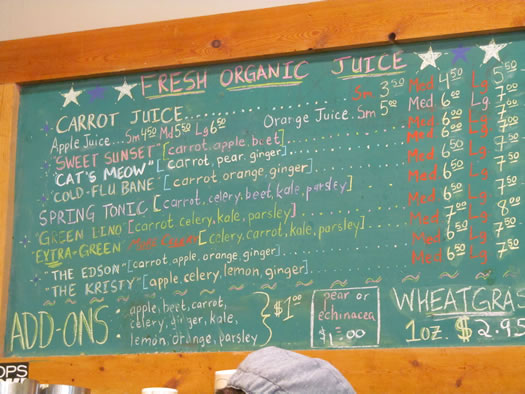 FRESH ORGANIC JUICE
CARROT JUICE Sm 3.50 Med 4.50 Lg 5.50
Apple Juice... Sm 4.50 Md 5.50 Lg 6.50 Orange Juice. Sm 5.00 Med 6.00 Lg 7.50
"SWEET SUNSET" [carrot, apple, beet] Med 6.00 Lg 7.00
"CAT'S MEOW" [carrot, pear, ginger] Med 6.00 Lg 7.00
"COLD-FLU BANE" [carrot orange, ginger] Med 6.50 Lg 7.50
SPRING TONIC [carrot, celery, beet, kale, parsley] Med 6.50 Lg 7.50
"GREEN LINO [carrot celery, kale, parsley] Med 6.50 Lg 7.50
"EXTRA-GREEN [celery, carrot, kale, parsley] Med 7.00 Lg 8.00
"THE EDSON" [carrot, apple, orange, ginger] Med 6.50 Lg 7.50
"THE KRISTY" [apple, celery, lemon, ginger] Med 6.50 Lg 7.50
ADD-ONS: apple, beet, carrot,
celery, ginger, kale,
lemon, orange, parsley
$1.00
pear or
echinacea
$1.00
WHEATGRAS
1oz. $2.95
OPS